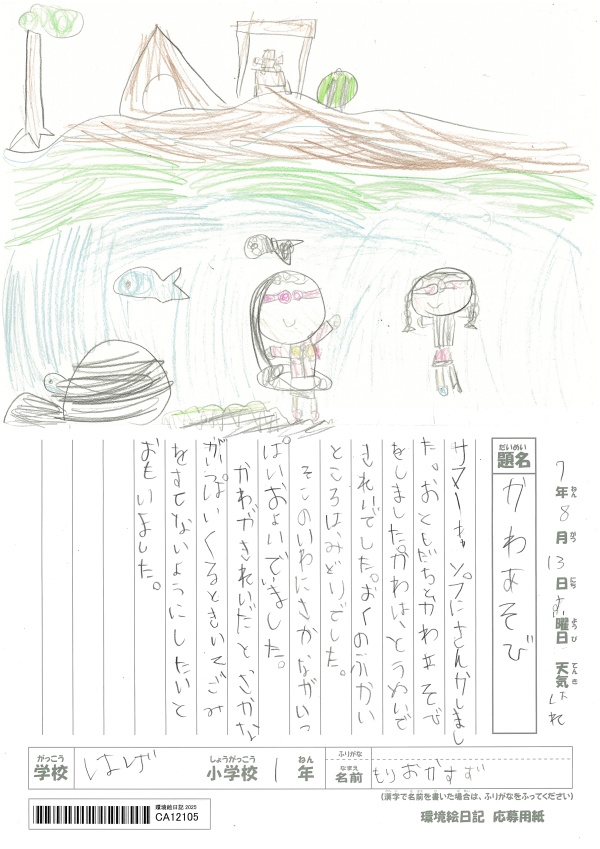 7年8月13日すい曜日 天気はれ
ねん がつ にち ようび てんき
だいめい
題名 かわあそび
サマーキャンプにさんかしまし
た。おともだちとかわあそび
をしました。かわは、とうめいで
きれいでした。おくのふかい
ところは、みどりでした。
そこのいわにさかながいっ
ぱいおよいでいました。
かわがきれいだと、さかな
がいっぱいくるときいてごみ
をすてないようにしたいと
おもいました。
がっこう しょうがっこう ねん ふりがな なまえ
学校 小学校 1年 名前 もりおかすず
(漢字で名前を書いた場合は、ふりがなをふってください)
環境絵日記 2025
CA12105
環境絵日記 応募用紙